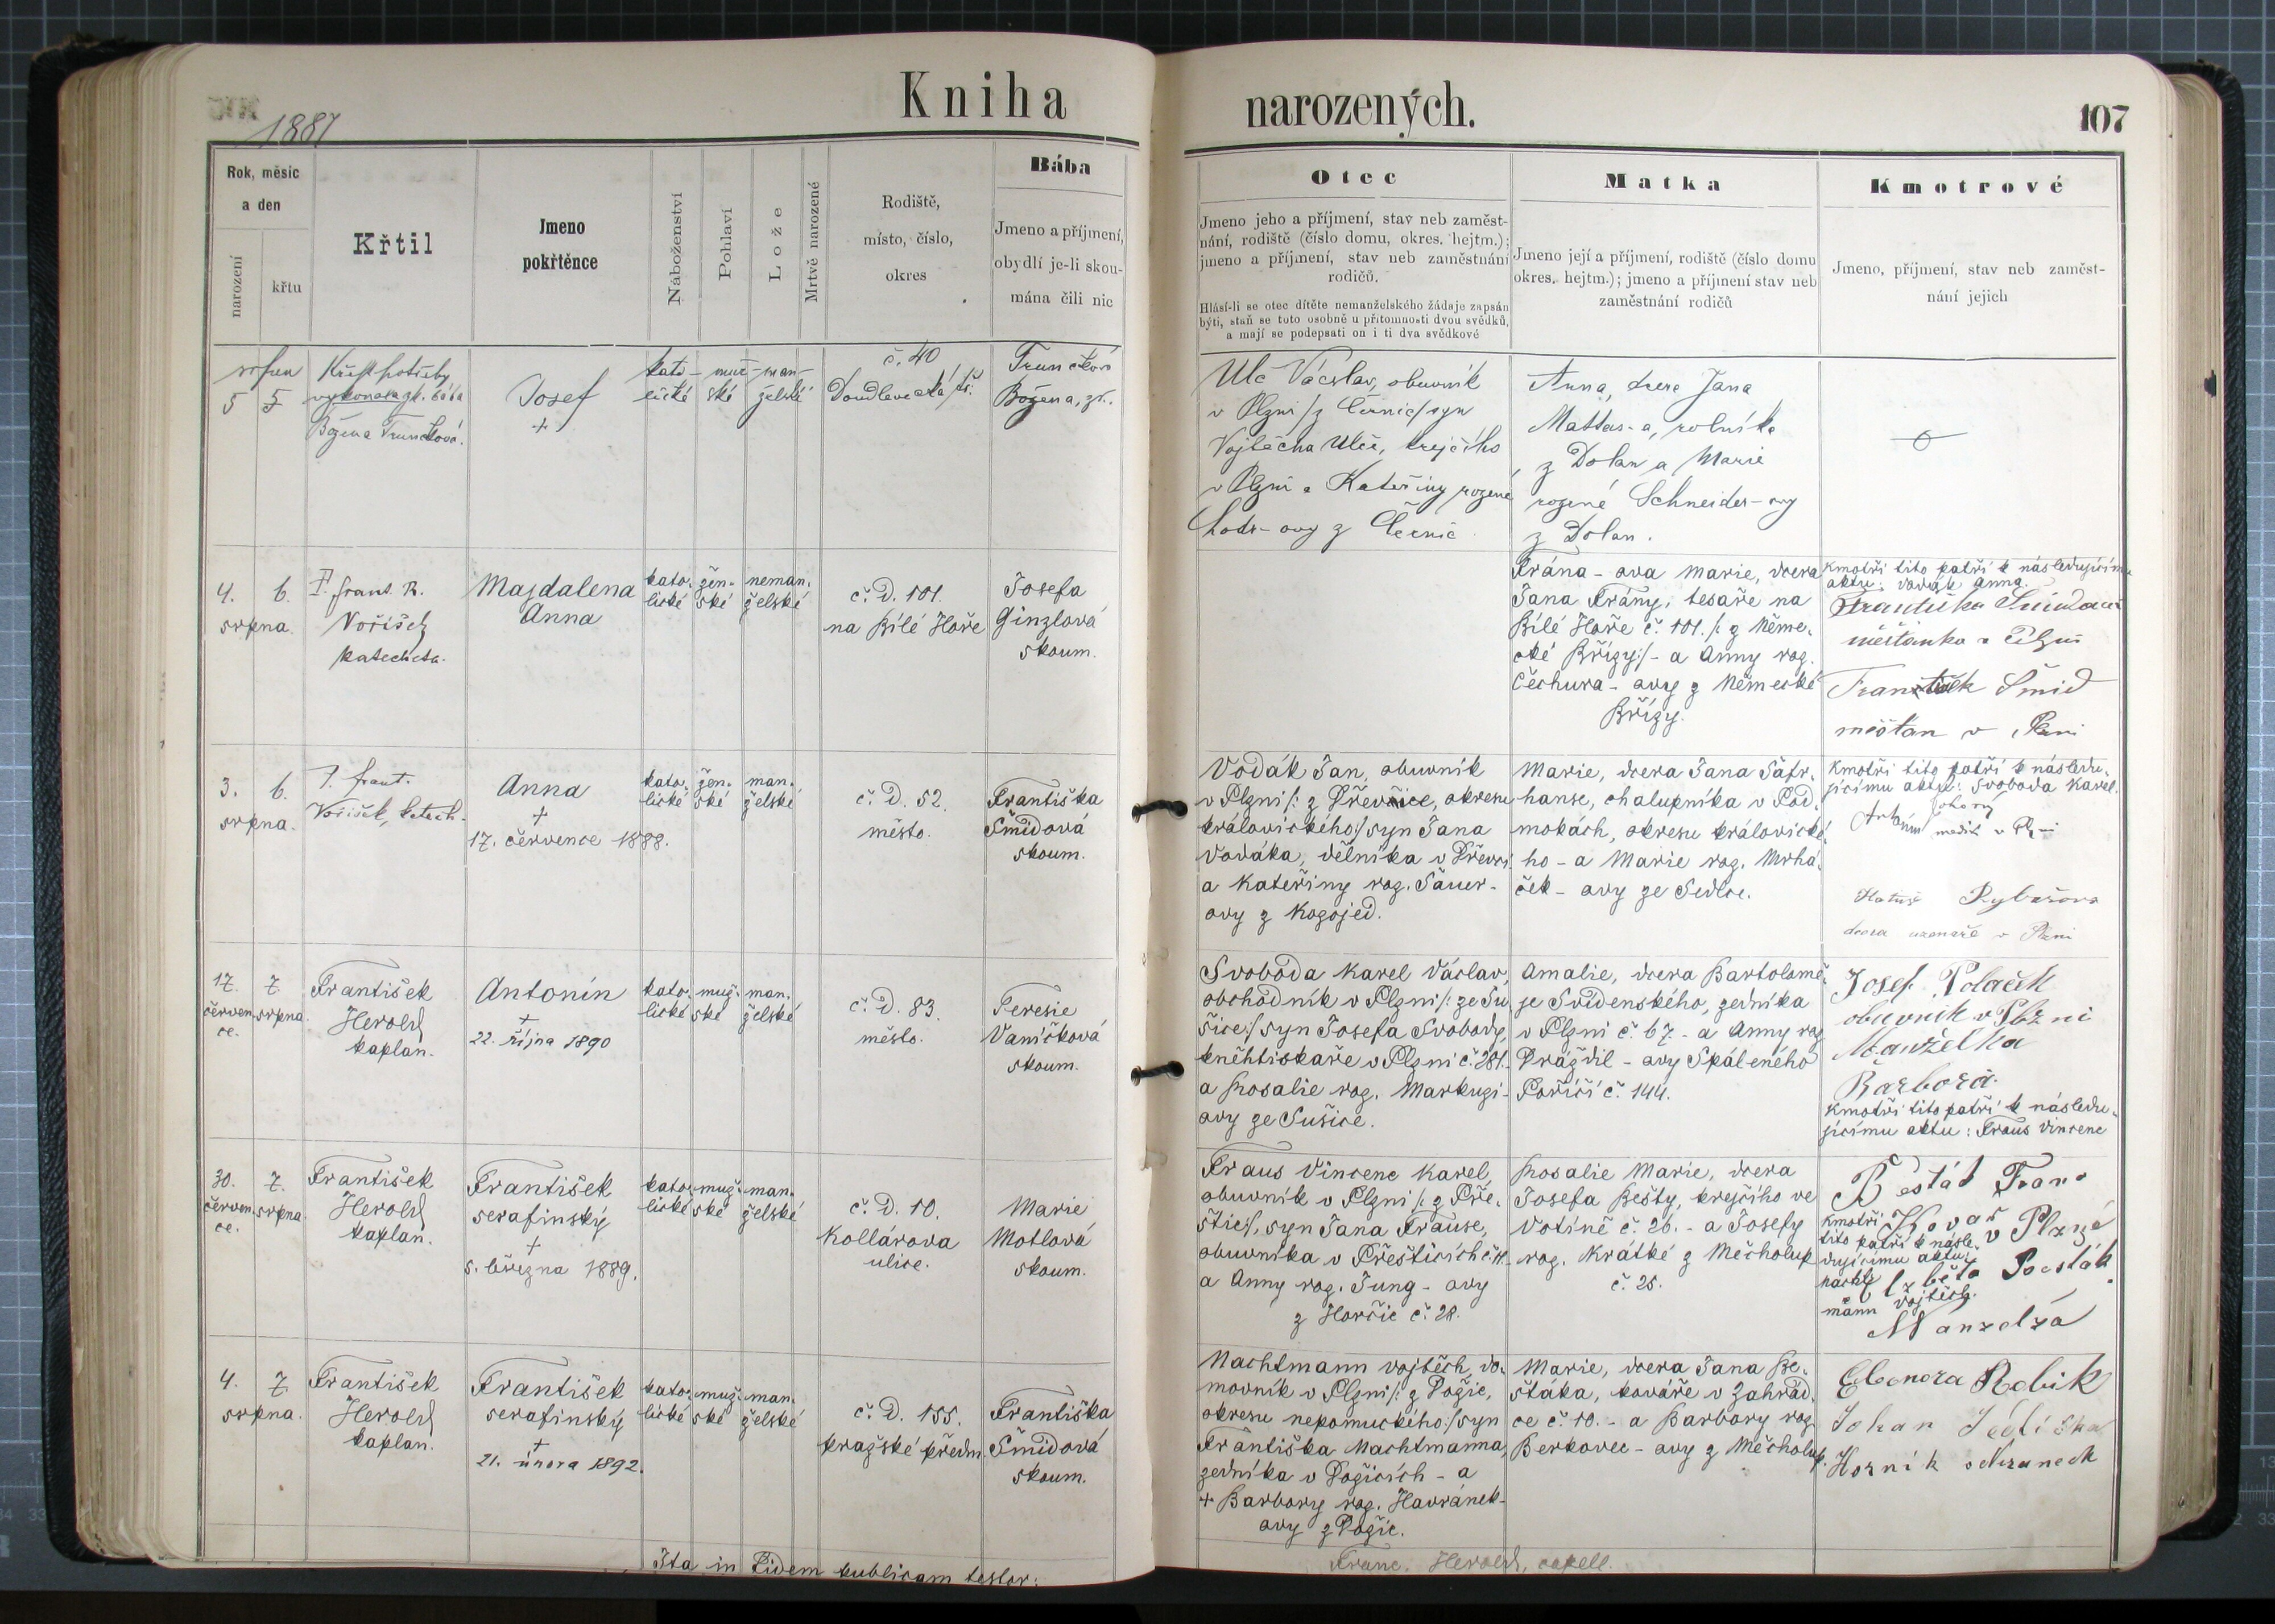 Kniha
narozených.
107
1887
Rok, měsíc
a den
narození
křtu
Křtil
Jmeno
pokřtěnce
Náboženství
Pohlaví
Lože
Mrtvě narozené
Rodiště,
místo, číslo,
okres
Bába
Jmeno a příjmení,
obydlí je-li skou-
mána čili nic
Otec
Jmeno jeho a příjmení, stav neb zaměst-
nání, rodiště (číslo domu, okres. hejtm.);
jmeno a příjmení, stav neb zaměstnání
rodičů.
Hlásí-li se otec dítěte nemanželského žádaje zapsán
býti, staň se toto osobně u přítomnosti dvou svědků,
a mají se podepsati on i ti dva svědkové
Matka
Jmeno její a příjmení, rodiště (číslo domu
okres. hejtm.); jmeno a příjmení stav neb
zaměstnání rodičů
Kmotrové
Jmeno, příjmení, stav neb zaměst-
nání jejich
srpen
5 5
Křest potřeby
vykonala zk. bába
Božena Trunečková.
Josef
+
kato- muž- man-
lické ské želské
č. 40
Doudlevecká tř.
Trunečková
Božena, zk.
Ulč Václav, obuvník
v Plzni /z Černic/ syn
Vojtěcha Ulče, krejčího
v Plzni a Kateřiny rozené
z Černic.
Anna, dcera Jana
Mattas-a, rolníka
z Dolan a Marie
rozené Schneider-ovy
z Dolan.
4. 6.
srpna.
P. Frant. R.
Voříšek
katecheta.
Majdalena
Anna
kato- žen- neman-
lické ské želské
č. D. 101.
na Bílé Hoře
Josefa
Ginzlová
skoum.
Frána-ova Marie, dcera
Jana Frány, tesaře na
Bílé Hoře č. 101. /: z Něme-
cké Břízy:/ - a Anny roz.
Čechura-ovy z Německé
Břízy.
Kmotři tito patří k následujícímu
aktu: Vodák Anna.
Františka Šmídová
měšťanka v Plzni
František Šmíd
měšťan v Plzni
3. 6.
srpna.
P. Frant.
Voříšek, katech.
Anna
+
17. července 1888.
kato- žen- man-
lické ské želské
č. D. 52.
město.
Františka
Šmídová
skoum.
Vodák Jan, obuvník
v Plzni /: z Dřevčice, okresu
královického:/ syn Jana
Vodáka, dělníka v
a Kateřiny roz. Sauer-
ovy z Kozojed.
Marie, dcera Jana Šafr-
hanse, chalupníka v Pod-
mokách, okresu královické-
ho - a Marie roz. Mrhá-
ček-ovy ze Sedlce.
Kmotři tito patří k následu-
jícímu aktu: Svoboda Karel.
v Plzni
Rybářova
dcera uzenáře v Plzni
17. 7.
červen- srpna.
ce.
František
Herold
kaplan.
Antonín
+
22. října 1890
kato- muž- man-
lické ské želské
č. D. 83.
město.
Teresie
Vaníčková
skoum.
Svoboda Karel Václav,
obchodník v Plzni /: ze Su-
šice:/ syn Josefa Svobody,
kněhtiskaře v Plzni č. 281.
a Rosalie roz. Markuzi-
ovy ze Sušice.
Amalie, dcera Bartolomě-
je Svidenského, zedníka
v Plzni č. 67. - a Anny roz.
Prázdil-ovy Spáleného
Poříčí č. 144.
Josef Polaček
obuvník v Plzni
Manželka
Barbora.
Kmotři tito patří k následu-
jícímu aktu: Fraus Vincenc
30. 7.
červen- srpna.
ce.
František
Herold
kaplan.
František
serafinský
+
5. března 1889.
kato- muž- man-
lické ské želské
č. D. 10.
Kollárova
ulice.
Marie
Motlová
skoum.
Fraus Vincenc Karel,
obuvník v Plzni /: z Pře-
štic:/, syn Jana Frause,
obuvníka v Přešticích č.
a Anny roz. Jung-ovy
z Horčic č. 28.
Rosalie Marie, dcera
Josefa Bešty, krejčího ve
Votíně č. 26. - a Josefy
roz. Krátké z Měcholup
č. 25.
Bešták Franc
Kovař v Plzně
Kmotři
tito patří k násle-
dujícímu aktu:
Nacht-
mann Vojtěch.
Alžběta Bešták
Manželza
4. 7.
srpna.
František
Herold
kaplan.
František
serafinský
+
21. února 1892.
kato- muž- man-
lické ské želské
č. D. 155.
pražské předm.
Františka
Šmídová
skoum.
Nachtmann Vojtěch, do-
movník v Plzni /: z Požic,
okresu nepomuckého:/ syn
Františka Nachtmanna,
zedníka v Požicích - a
+ Barbory roz. Havránek-
ovy z Požic.
Marie, dcera Jana Be-
štáka, kováře v Zahrád-
ce č. 10. - a Barbory roz.
Berkovec-ovy z Měcholup.
Eleonora Rebik
Johan Jedlička
Horník
Ita in Fidem publicam testor:
Franc. Herold, capell.